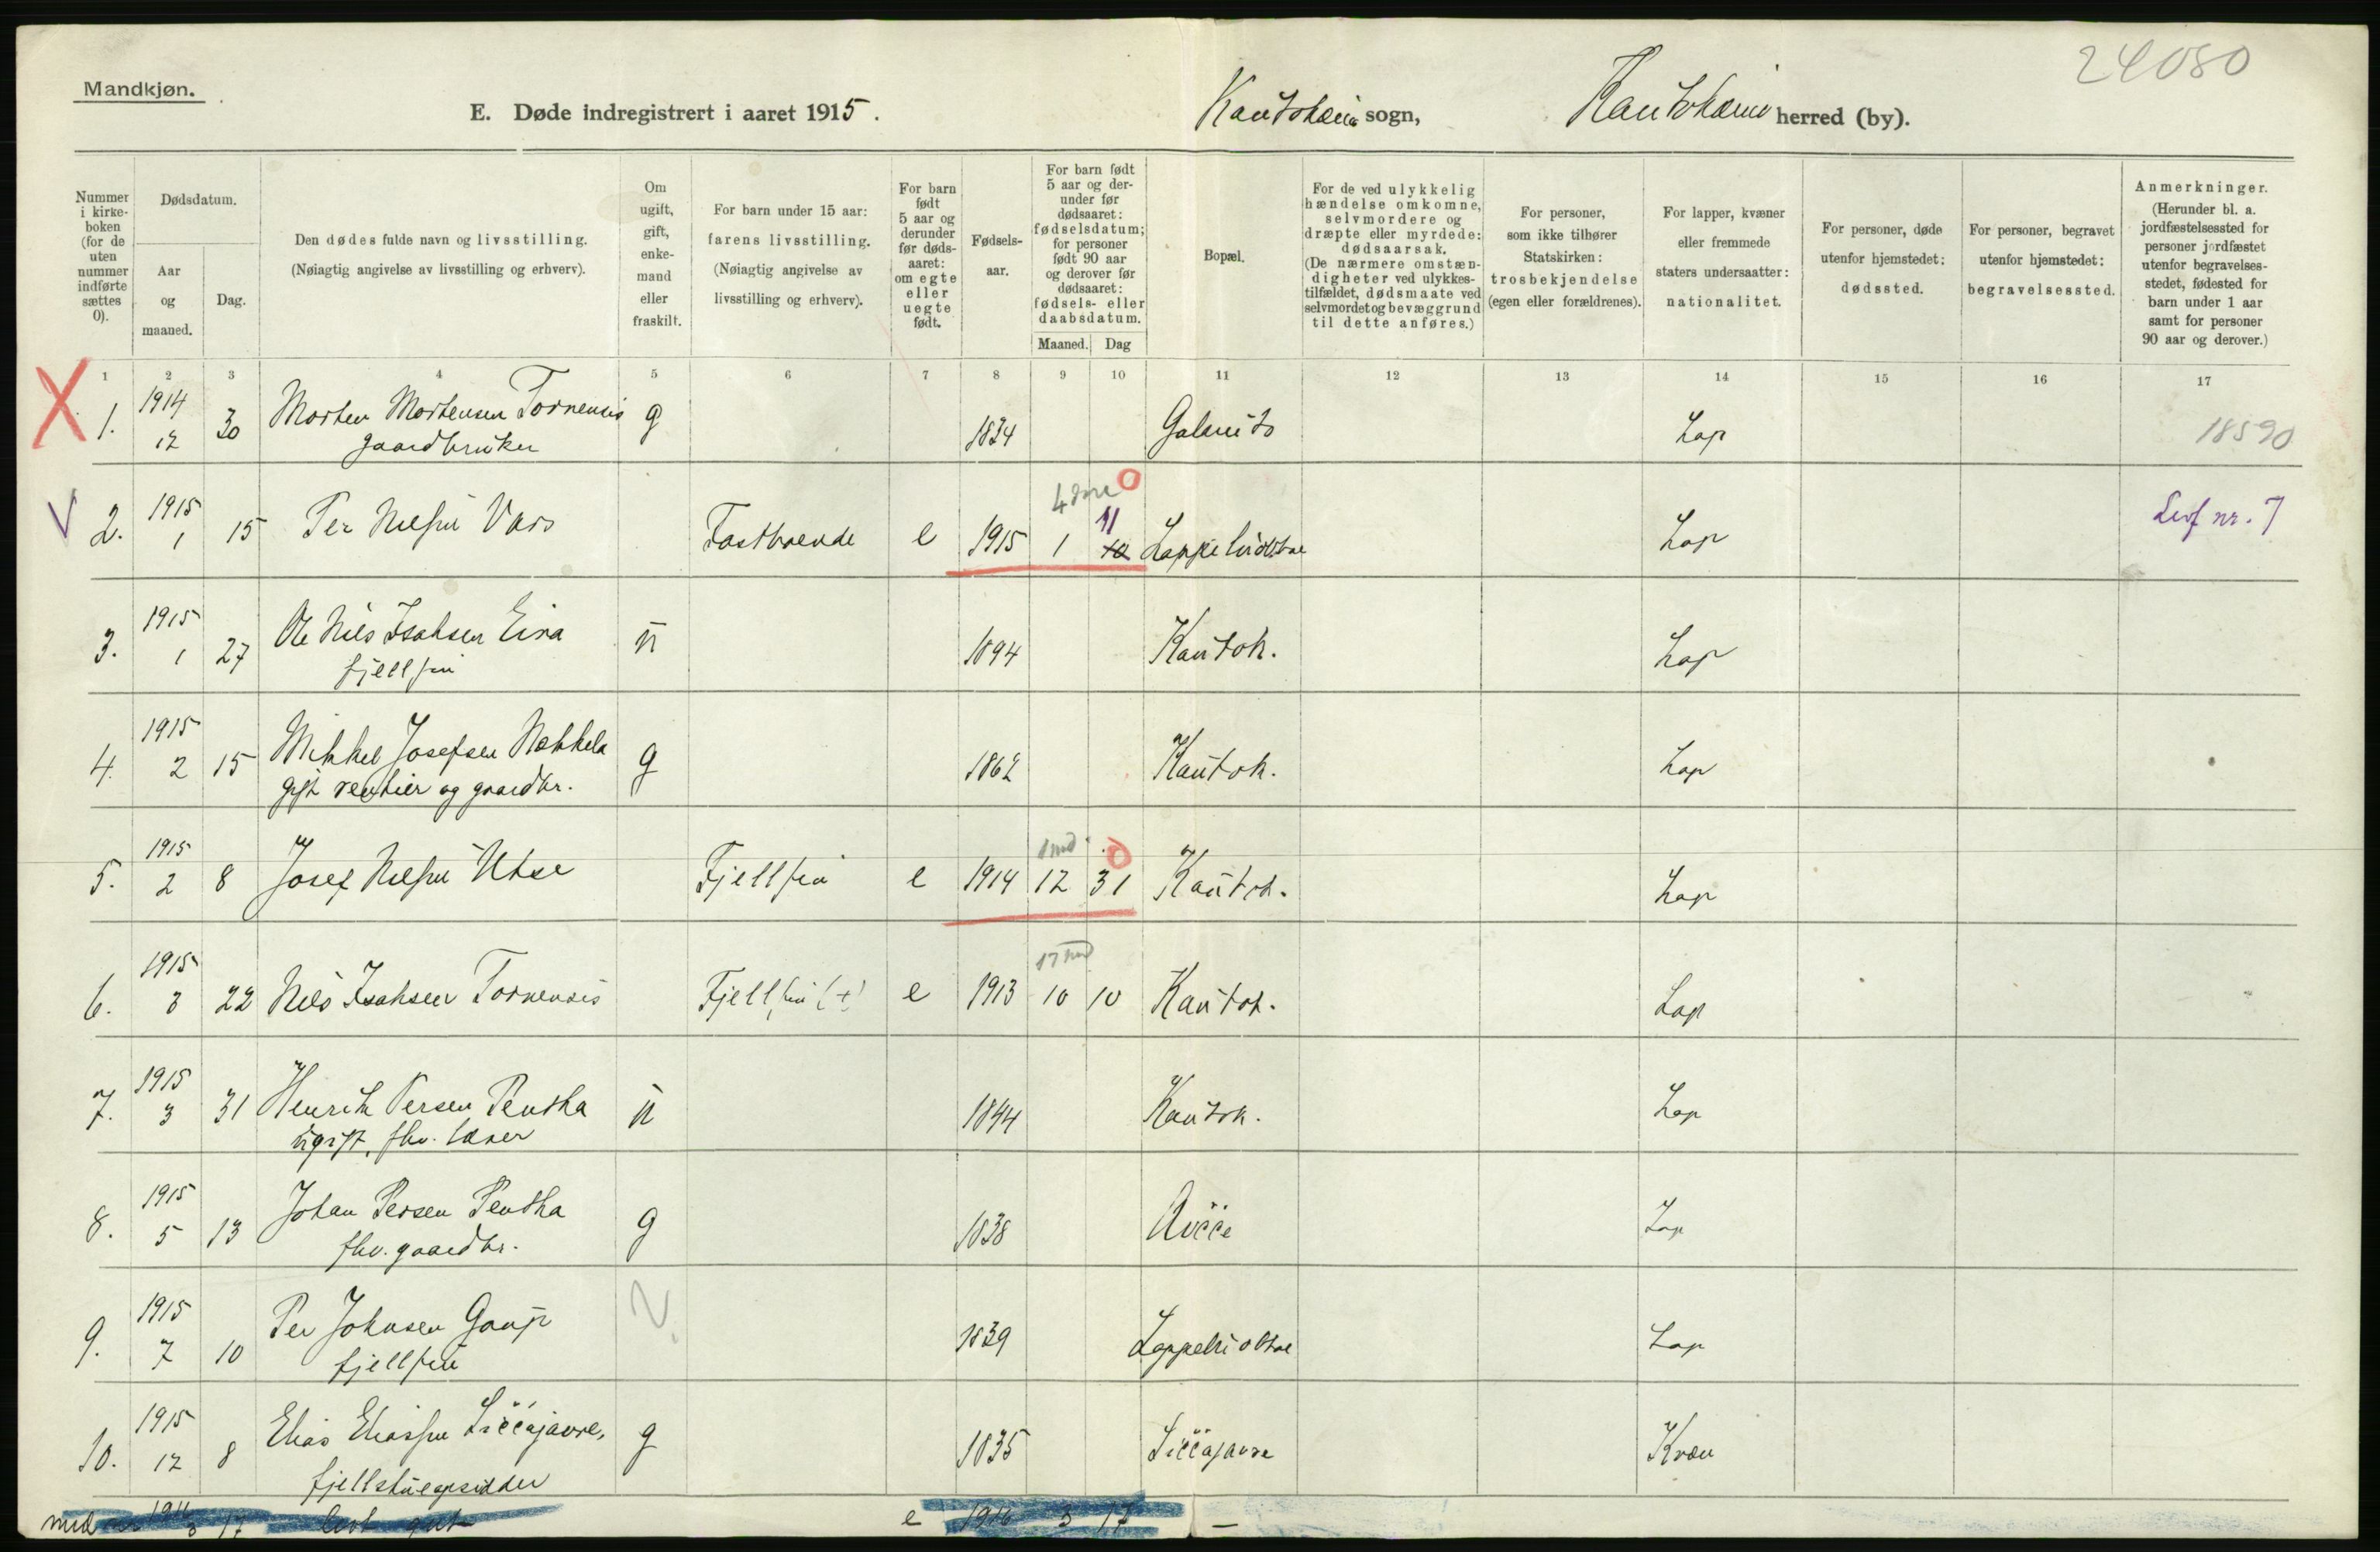 24080
Mandkjøn.
E. Døde indregistrert i aaret 1915.
Kautokeino sogn, Kautokeino herred (by).
Nummer i kirke-boken (for de uten nummer indførte sættes 0).
Dødsdatum.
Aar og maaned.
Dag.
Den dødes fulde navn og livsstilling.
(Nøiagtig angivelse av livsstilling og erhverv).
Om ugift, gift, enke-mand eller fraskilt.
For barn under 15 aar:
farens livsstilling.
(Nøiagtig angivelse av livsstilling og erhverv).
For barn født 5 aar og derunder før døds-aaret: om egte eller uegte født.
Fødsels-aar.
For barn født 5 aar og der-under før dødsaaret: fødselsdatum; for personer født 90 aar og derover før dødsaaret: fødsels- eller daabsdatum.
Maaned. Dag
Bopæl.
For de ved ulykkelig hændelse omkomne, selvmordere og dræpte eller myrdede: dødsaarsak.
(De nærmere omstæn-digheter ved ulykkes-tilfældet, dødsmaate ved selvmordet og bevæggrund til dette anføres.)
For personer, som ikke tilhører Statskirken: trosbekjendelse (egen eller forældrenes).
For lapper, kvæner eller fremmede staters undersaatter: nationalitet.
For personer, døde utenfor hjemstedet: dødssted.
For personer, begravet utenfor hjemstedet: begravelsessted.
Anmerkninger.
(Herunder bl. a. jordfæstelsessted for personer jordfæstet utenfor begravelses-stedet, fødested for barn under 1 aar samt for personer 90 aar og derover.)
1 2 3 4 5 6 7 8 9 10 11 12 13 14 15 16 17
X 1. 1914 12 30 Morten Mortensen Tornensis g 1834 Lap 18590
gaardbruker
V 2. 1915 1 15 Per Nilsen Vars Fastboende e 1915 1 10 11 Lap Levf nr. 7
3. 1915 1 27 Ole Nils Isaksen Eira u 1894 Kautok. Lap
fjellfin
4. 1915 2 15 Mikkel Josefsen Nækkela g 1862 Kautok. Lap
gift rentier og gaardbr.
5. 1915 2 8 Josef Nilsen Utse Fjellfin e 1914 12 31 Kautok. Lap
6. 1915 3 22 Nils Isaksen Tornensis Fjellfin (+) e 1913 10 10 Kautok. Lap
7. 1915 3 31 Henrik Persen Pentha u 1844 Kautok. Lap
ugift, fhv. lærer
8. 1915 5 13 Johan Persen Pentha g 1838 Avčče Lap
fhv. gaardbr.
9. 1915 7 10 Per Johnsen Gaup ? 1839 Lap
fjellfin
10. 1915 12 8 Elias Eliassen Siččajavre, g 1835 Siččajavre Kvæn
fjellstueopsidder
1916 3 17 e 1916 3 17 —